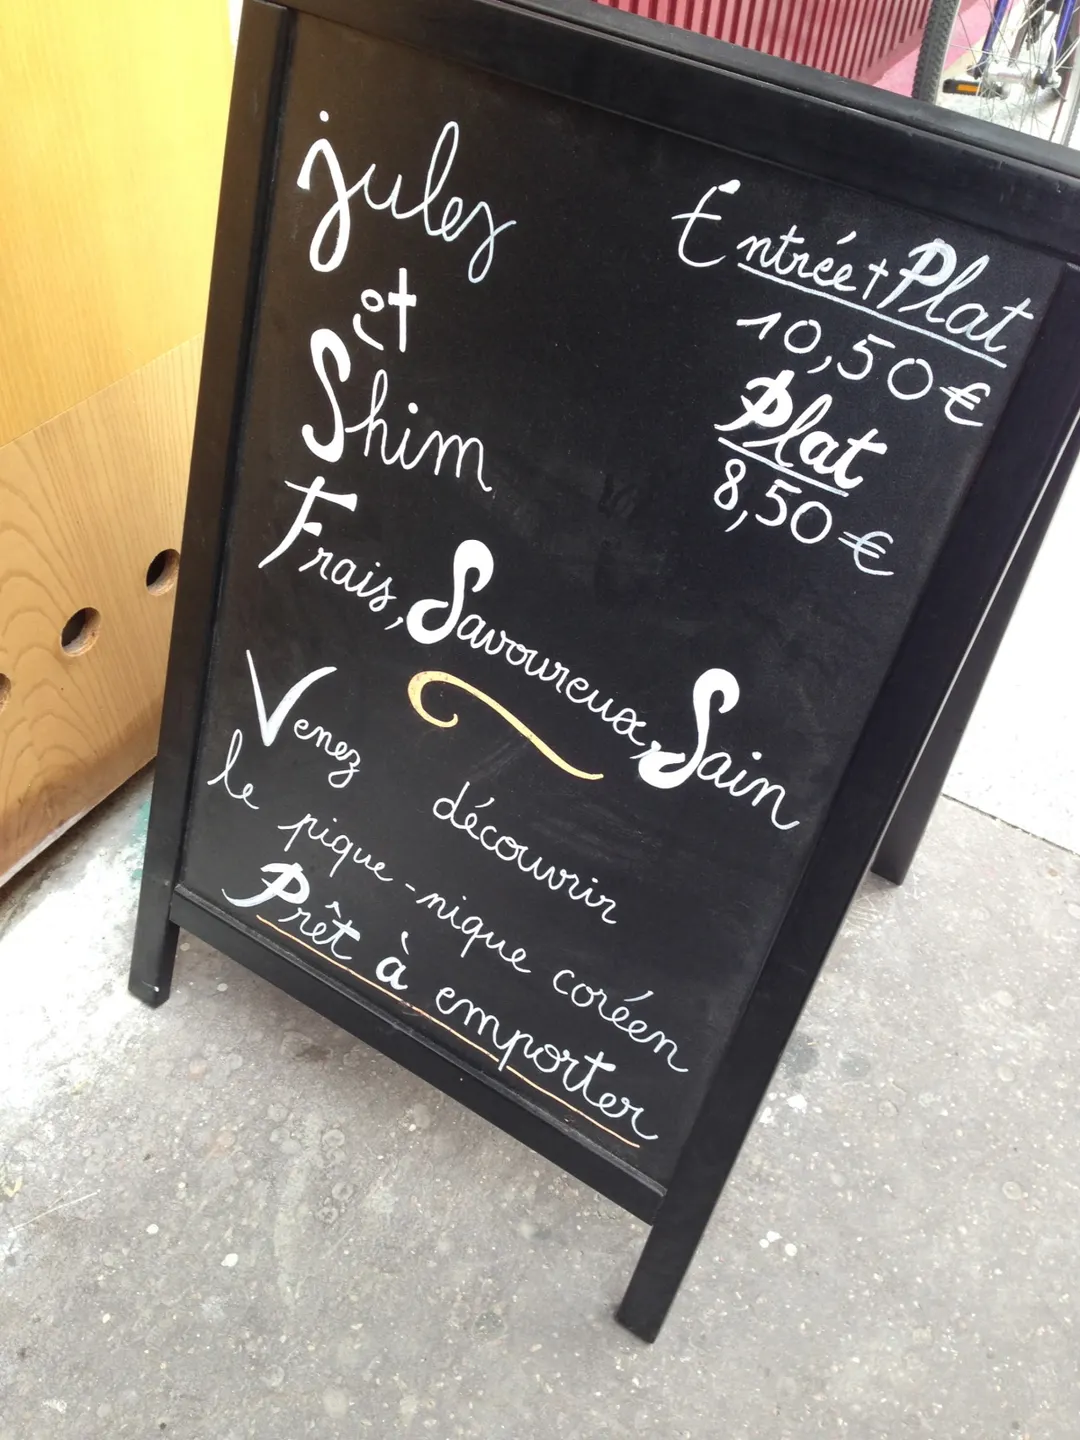 jules
et
Shim
Entrée + Plat
10,50€
Plat
8,50€
Frais, Savoureux, Sain
Venez découvrir
le pique-nique coréen
Prêt à emporter